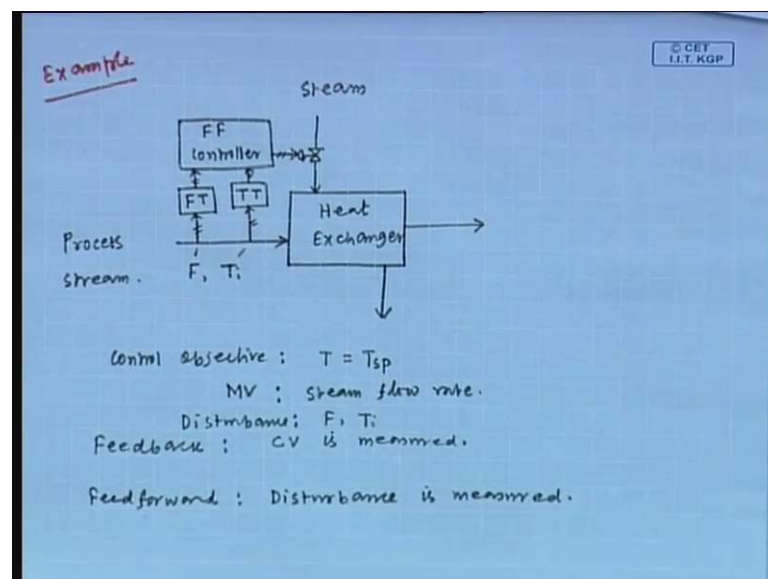 Example
© CET
I.I.T. KGP
Steam
FF
Controller
FT
TT
Heat
Exchanger
Process
stream.
F, Ti
Control objective : T = Tsp
MV : Steam flow rate.
Disturbance: F, Ti
Feedback : CV is measured.
Feedforward : Disturbance is measured.